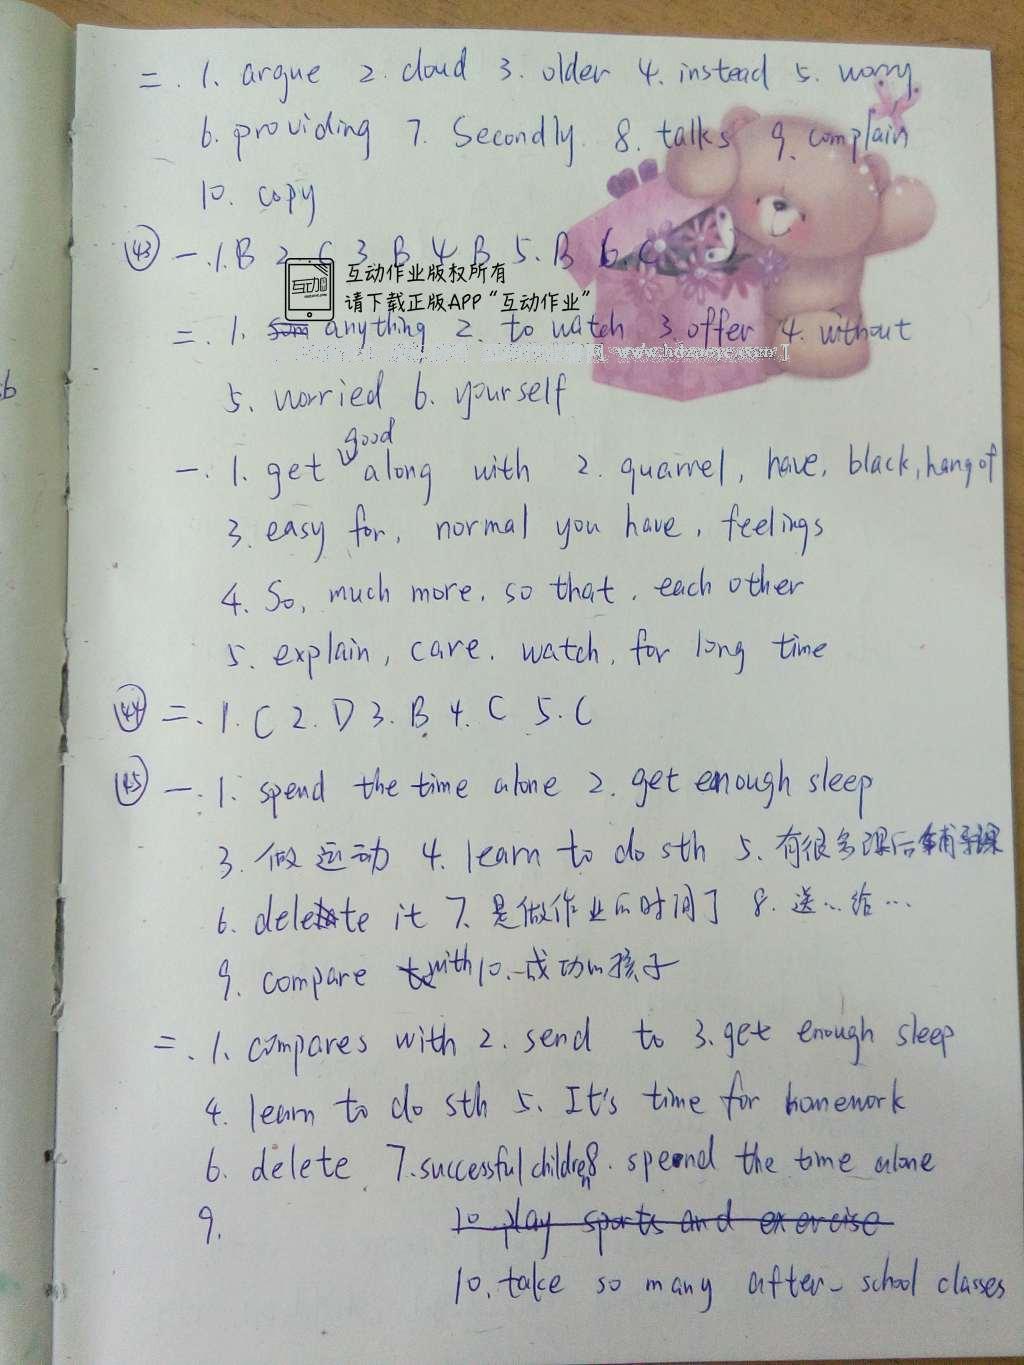 二. 1. argue 2. cloud 3. older 4. instead 5. worry
6. providing 7. Secondly 8. talks 9. complain
10. copy
43 一. 1. B 2. C 3. B 4. B 5. B 6. C
互动作业版权所有
请下载正版APP“互动作业”
二. 1. anything 2. to watch 3. offer 4. without
5. worried 6. yourself
good
一. 1. get along with 2. quarrel, have, black, hang of
3. easy for, normal you have, feelings
4. So, much more, so that, each other
5. explain, care, watch, for long time
44 二. 1. C 2. D 3. B 4. C 5. C
45 一. 1. spend the time alone 2. get enough sleep
3. 做运动 4. learn to do sth 5. 有很多课后辅导课
6. delete it 7. 是做作业的时间了 8. 送…给…
9. compare with 10. 成功的孩子
二. 1. compares with 2. send to 3. get enough sleep
4. learn to do sth 5. It's time for homework
6. delete 7. successful children 8. spend the time alone
9. 10. play sports and exercise
10. take so many after-school classes